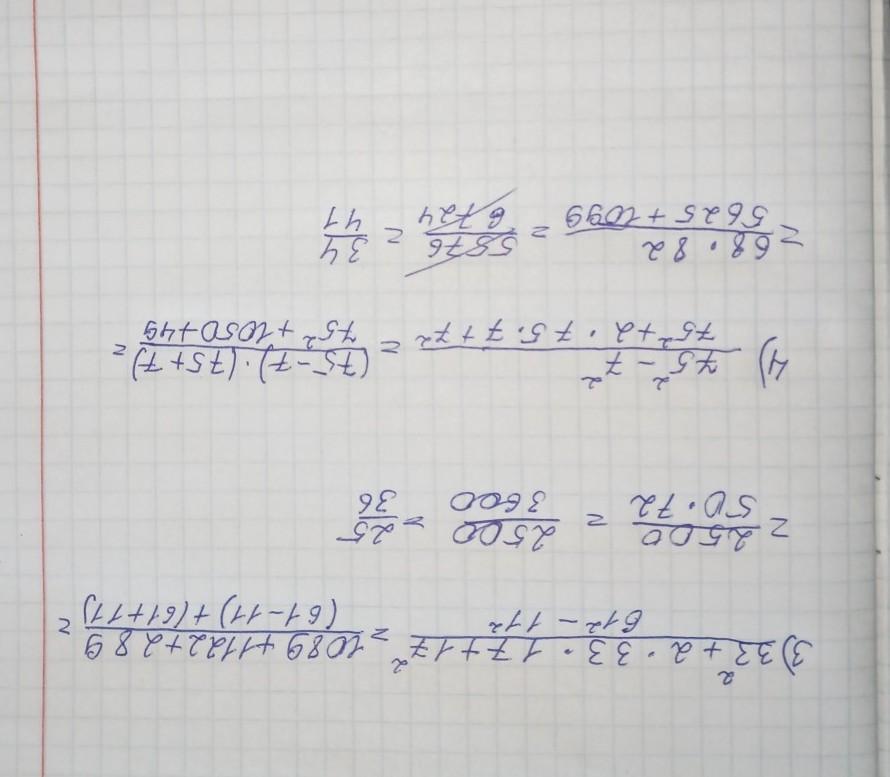 3) \frac{33^2+2·33·17+17^2}{61^2-11^2} = \frac{1089+1122+289}{(61-11)+(61+11)} =
= \frac{2500}{50·72} = \frac{2500}{3600} = \frac{25}{36}
4) \frac{75^2-7^2}{75^2+2·75·7+7^2} = \frac{(75-7)·(75+7)}{75^2+1050+49} =
= \frac{68·82}{5625+1099} = \frac{5576}{6724} = \frac{34}{41}